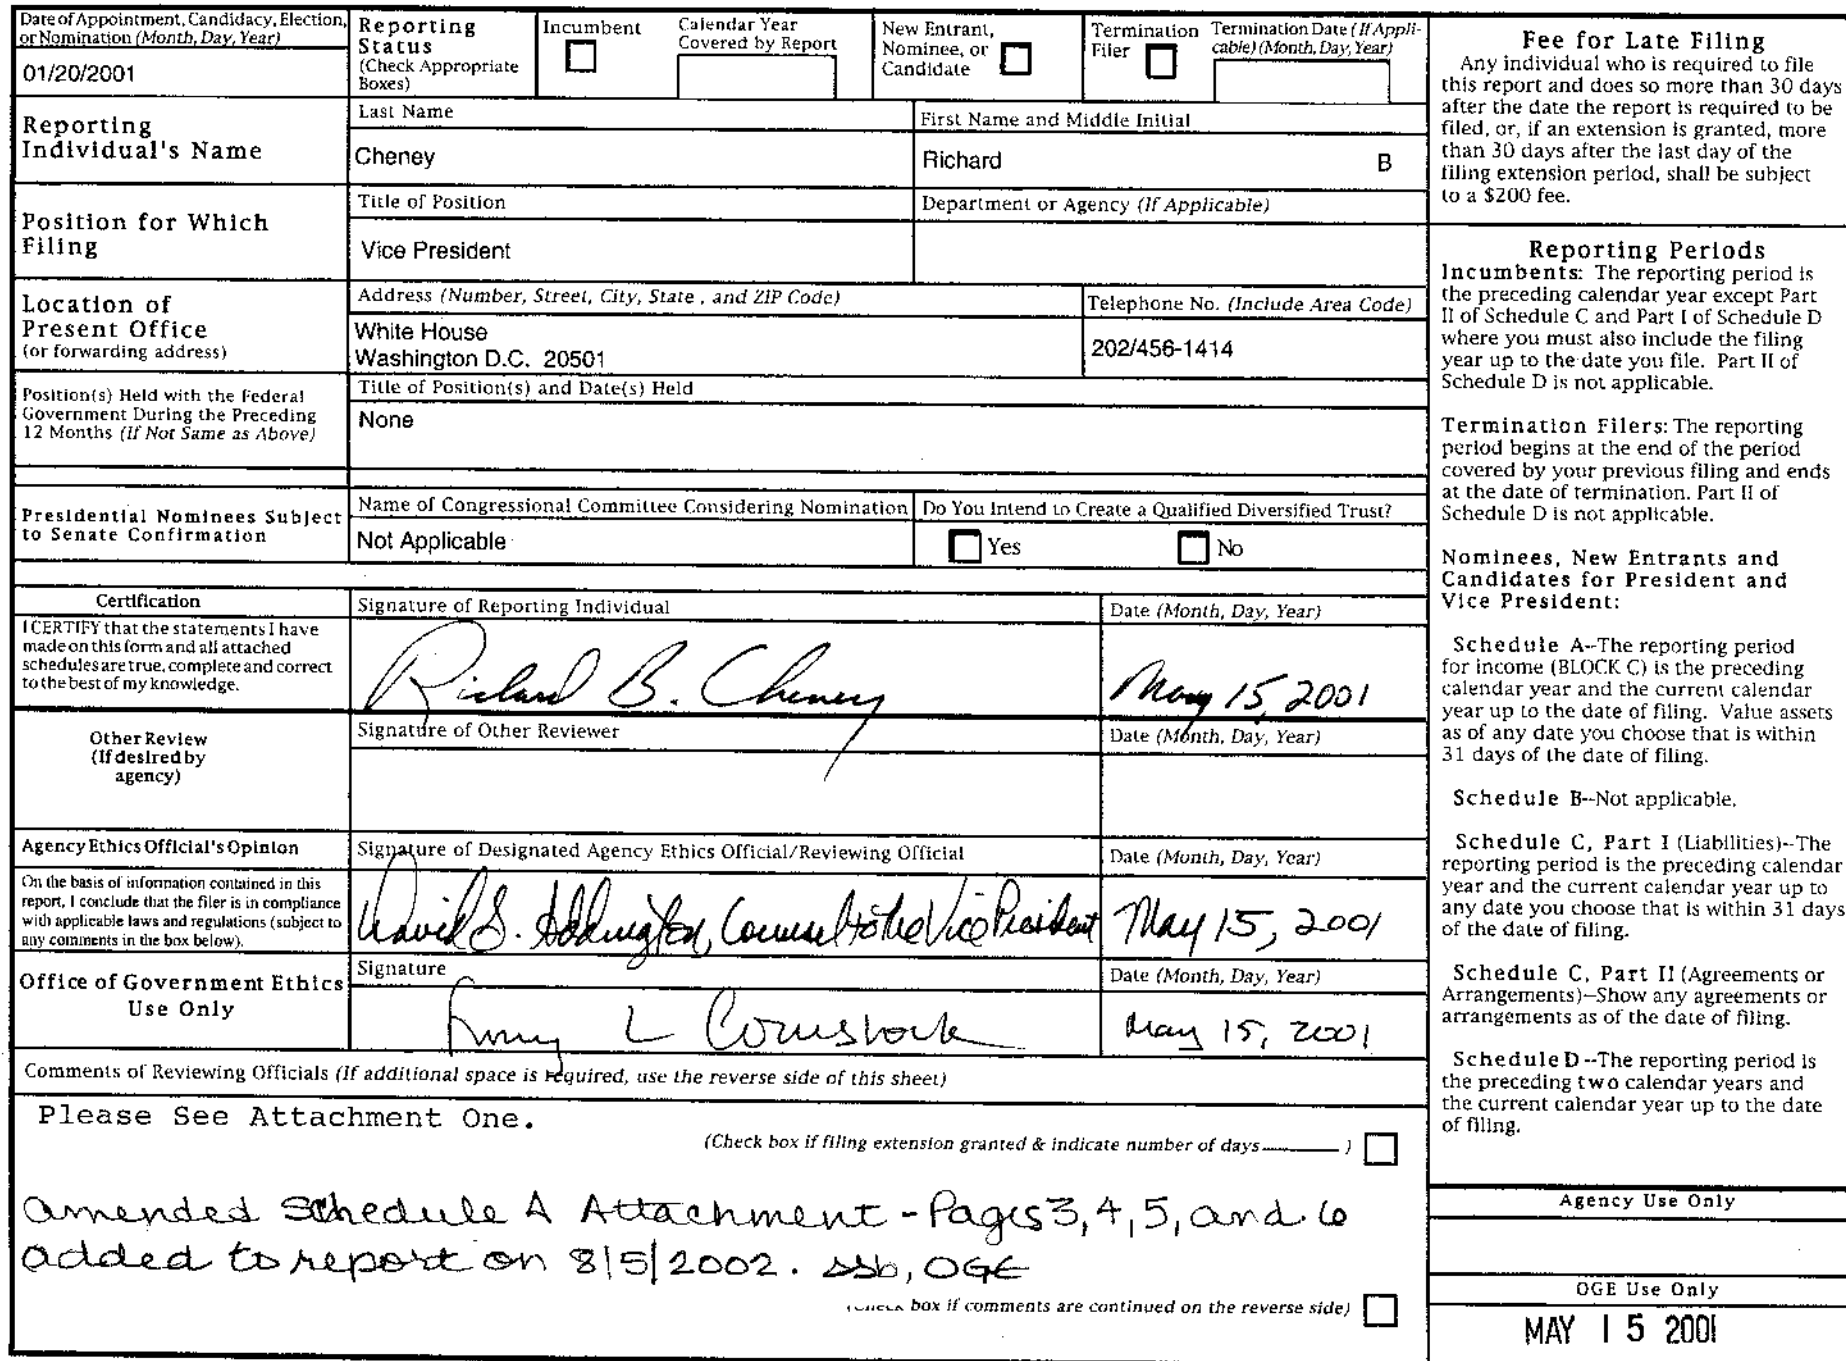 Date of Appointment, Candidacy, Election,
or Nomination (Month, Day, Year)
01/20/2001
Reporting
Status
(Check Appropriate
Boxes)
Incumbent
Calendar Year
Covered by Report
New Entrant,
Nominee, or
Candidate
Termination
Filer
Termination Date (If Appli-
cable) (Month, Day, Year)
Reporting
Individual's Name
Last Name
Cheney
First Name and Middle Initial
Richard B
Position for Which
Filing
Title of Position
Vice President
Department or Agency (If Applicable)
Location of
Present Office
(or forwarding address)
Address (Number, Street, City, State , and ZIP Code)
White House
Washington D.C. 20501
Telephone No. (Include Area Code)
202/456-1414
Position(s) Held with the Federal
Government During the Preceding
12 Months (If Not Same as Above)
Title of Position(s) and Date(s) Held
None
Presidential Nominees Subject
to Senate Confirmation
Name of Congressional Committee Considering Nomination
Not Applicable
Do You Intend to Create a Qualified Diversified Trust?
Yes No
Certification
I CERTIFY that the statements I have
made on this form and all attached
schedules are true, complete and correct
to the best of my knowledge.
Signature of Reporting Individual
Richard B. Cheney
Date (Month, Day, Year)
May 15, 2001
Other Review
(If desired by
agency)
Signature of Other Reviewer
Date (Month, Day, Year)
Agency Ethics Official's Opinion
On the basis of information contained in this
report, I conclude that the filer is in compliance
with applicable laws and regulations (subject to
any comments in the box below).
Signature of Designated Agency Ethics Official/Reviewing Official
David S. Addington, Counsel to the Vice President
Date (Month, Day, Year)
May 15, 2001
Office of Government Ethics
Use Only
Signature
Amy L Comstock
Date (Month, Day, Year)
May 15, 2001
Comments of Reviewing Officials (If additional space is required, use the reverse side of this sheet)
Please See Attachment One.
(Check box if filing extension granted & indicate number of days ______ )
amended Schedule A Attachment - Pages 3, 4, 5, and 6
added to report on 8/5/2002. ssb, OGE
(Check box if comments are continued on the reverse side)
Fee for Late Filing
Any individual who is required to file
this report and does so more than 30 days
after the date the report is required to be
filed, or, if an extension is granted, more
than 30 days after the last day of the
filing extension period, shall be subject
to a $200 fee.
Reporting Periods
Incumbents: The reporting period is
the preceding calendar year except Part
II of Schedule C and Part I of Schedule D
where you must also include the filing
year up to the date you file. Part II of
Schedule D is not applicable.
Termination Filers: The reporting
period begins at the end of the period
covered by your previous filing and ends
at the date of termination. Part II of
Schedule D is not applicable.
Nominees, New Entrants and
Candidates for President and
Vice President:
Schedule A--The reporting period
for income (BLOCK C) is the preceding
calendar year and the current calendar
year up to the date of filing. Value assets
as of any date you choose that is within
31 days of the date of filing.
Schedule B--Not applicable.
Schedule C, Part I (Liabilities)--The
reporting period is the preceding calendar
year and the current calendar year up to
any date you choose that is within 31 days
of the date of filing.
Schedule C, Part II (Agreements or
Arrangements)--Show any agreements or
arrangements as of the date of filing.
Schedule D--The reporting period is
the preceding two calendar years and
the current calendar year up to the date
of filing.
Agency Use Only
OGE Use Only
MAY 15 2001